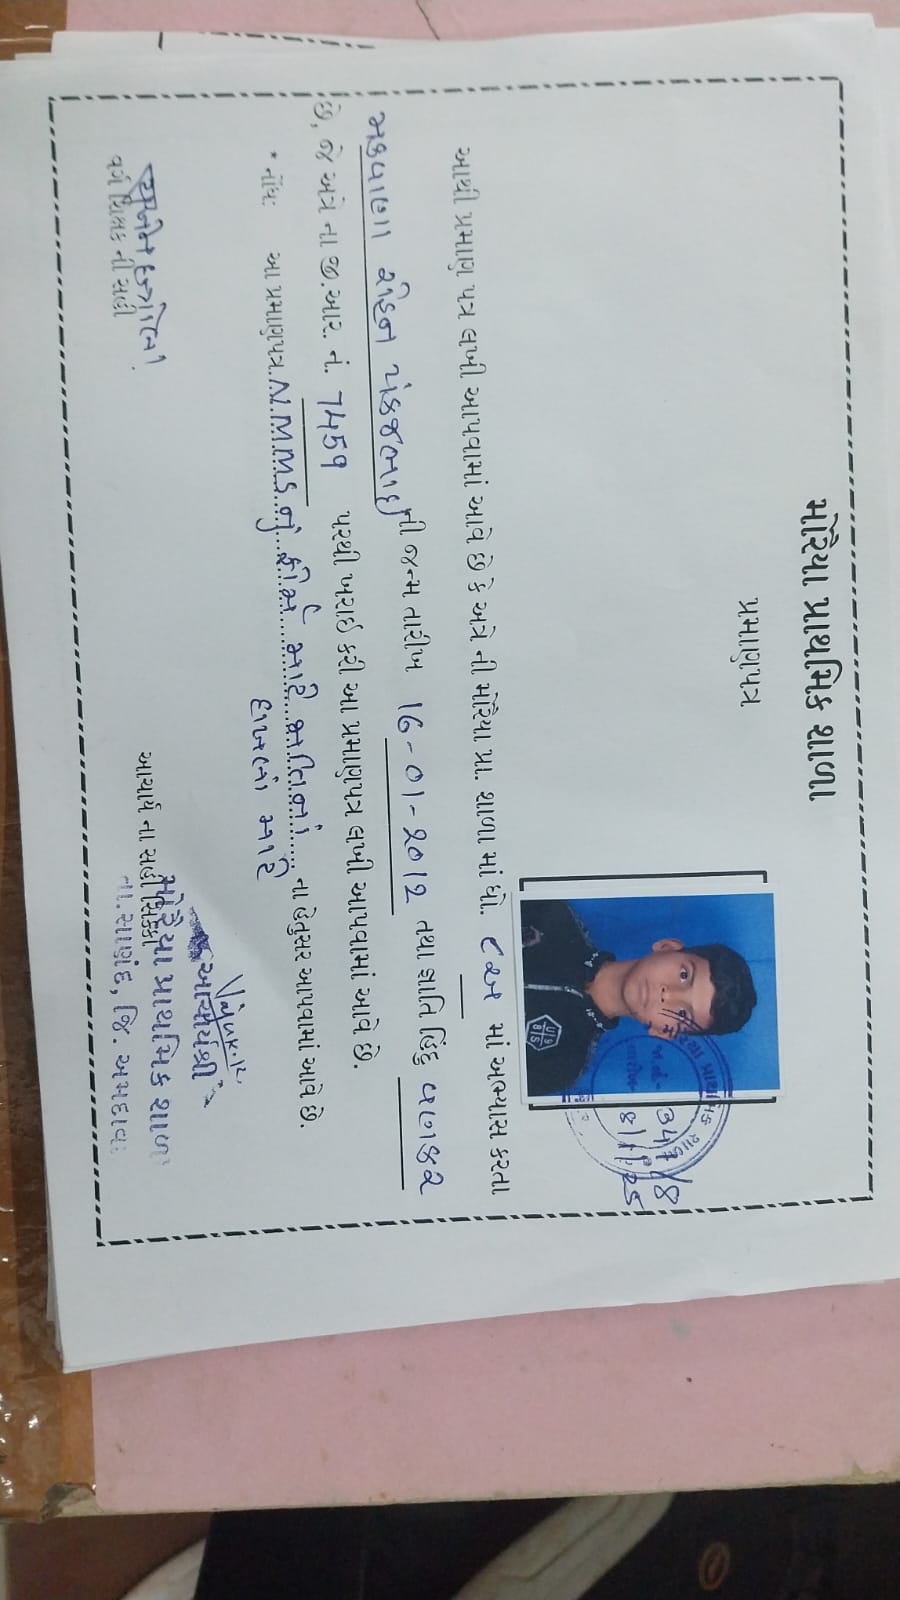 મોરૈયા પ્રાથમિક શાળા
પ્રમાણપત્ર
આથી પ્રમાણ પત્ર લખી આપવામાં આવે છે કે અત્રે ની મોરૈયા પ્રા. શાળા માં ધો. ૮ માં અભ્યાસ કરતા
મકવાણા રોહન પંકજભાઇ ની જન્મ તારીખ 16-01-2012 તથા જ્ઞાતિ હિંદુ વણકર
છે, જે અત્રે ના જી.આર. નં. 7459 પરથી ખરાઇ કરી આ પ્રમાણપત્ર લખી આપવામાં આવે છે.
* નોંધ: આ પ્રમાણપત્ર N.M.M.S. નું ફોર્મ માટે જાતિનાં ના હેતુસર આપવામાં આવે છે.
દાખલાં માટે
વર્ગ શિક્ષક ની સહી
આચાર્ય ના સહી સિક્કા
આચાર્યશ્રી
મોરૈયા પ્રાથમિક શાળા
તા.સાણંદ, જિ. અમદાવાદ